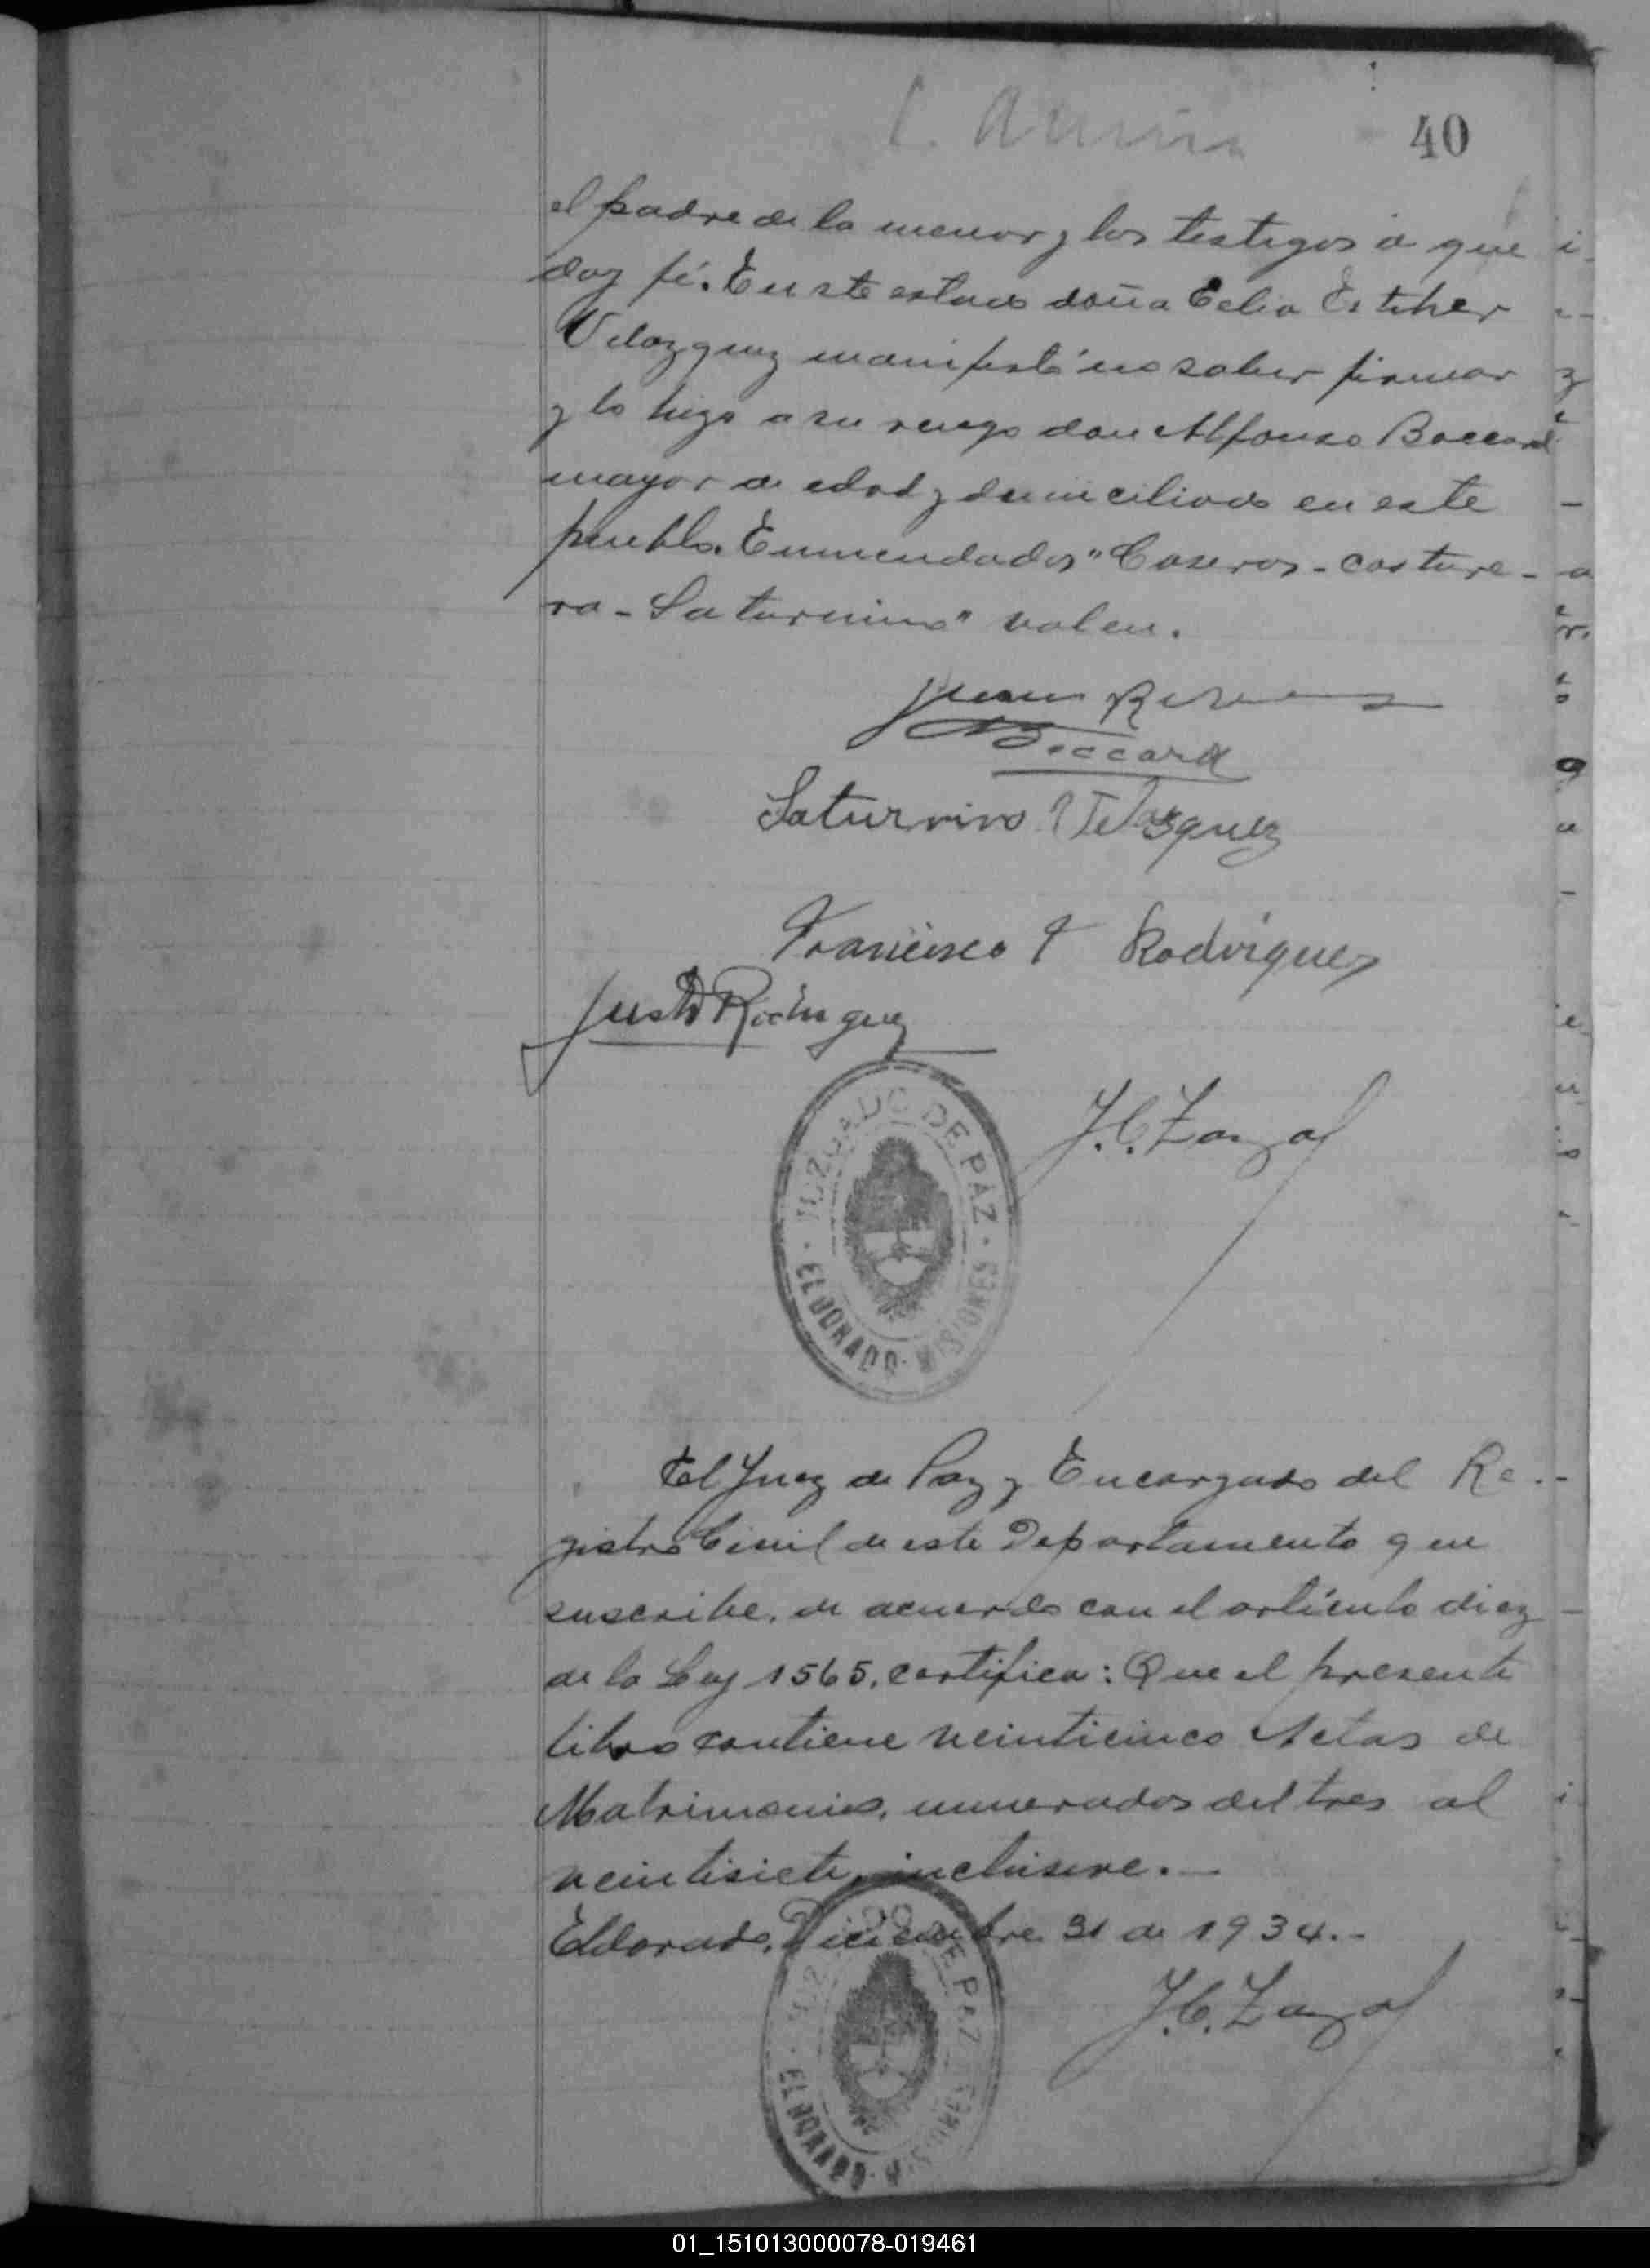 40
el padre de la menor y los testigos a que
doy fé. En este estado doña Celia Esther
Velazquez manifestó no saber firmar
y lo hizo a su ruego don Alfonso Boccard
mayor de edad y domiciliado en este
pueblo. Enmendados "Caseros - costure-
ra - Saturnino" valen.
Juan
Boccard
Saturnino Velazquez
Francisco Rodriguez
Justo Rodriguez
J. C. Zarza
JUZGADO DE PAZ
EL DORADO - MISIONES
El Juez de Paz y Encargado del Re-
gistro Civil de este Departamento que
suscribe, de acuerdo con el artículo diez
de la Ley 1565, certifica: Que el presente
libro contiene veinticinco Actas de
Matrimonio, numerados del tres al
veintisiete, inclusive.-
Eldorado, Diciembre 31 de 1934.-
JUZGADO DE PAZ
EL DORADO - MISIONES
01_151013000078-019461